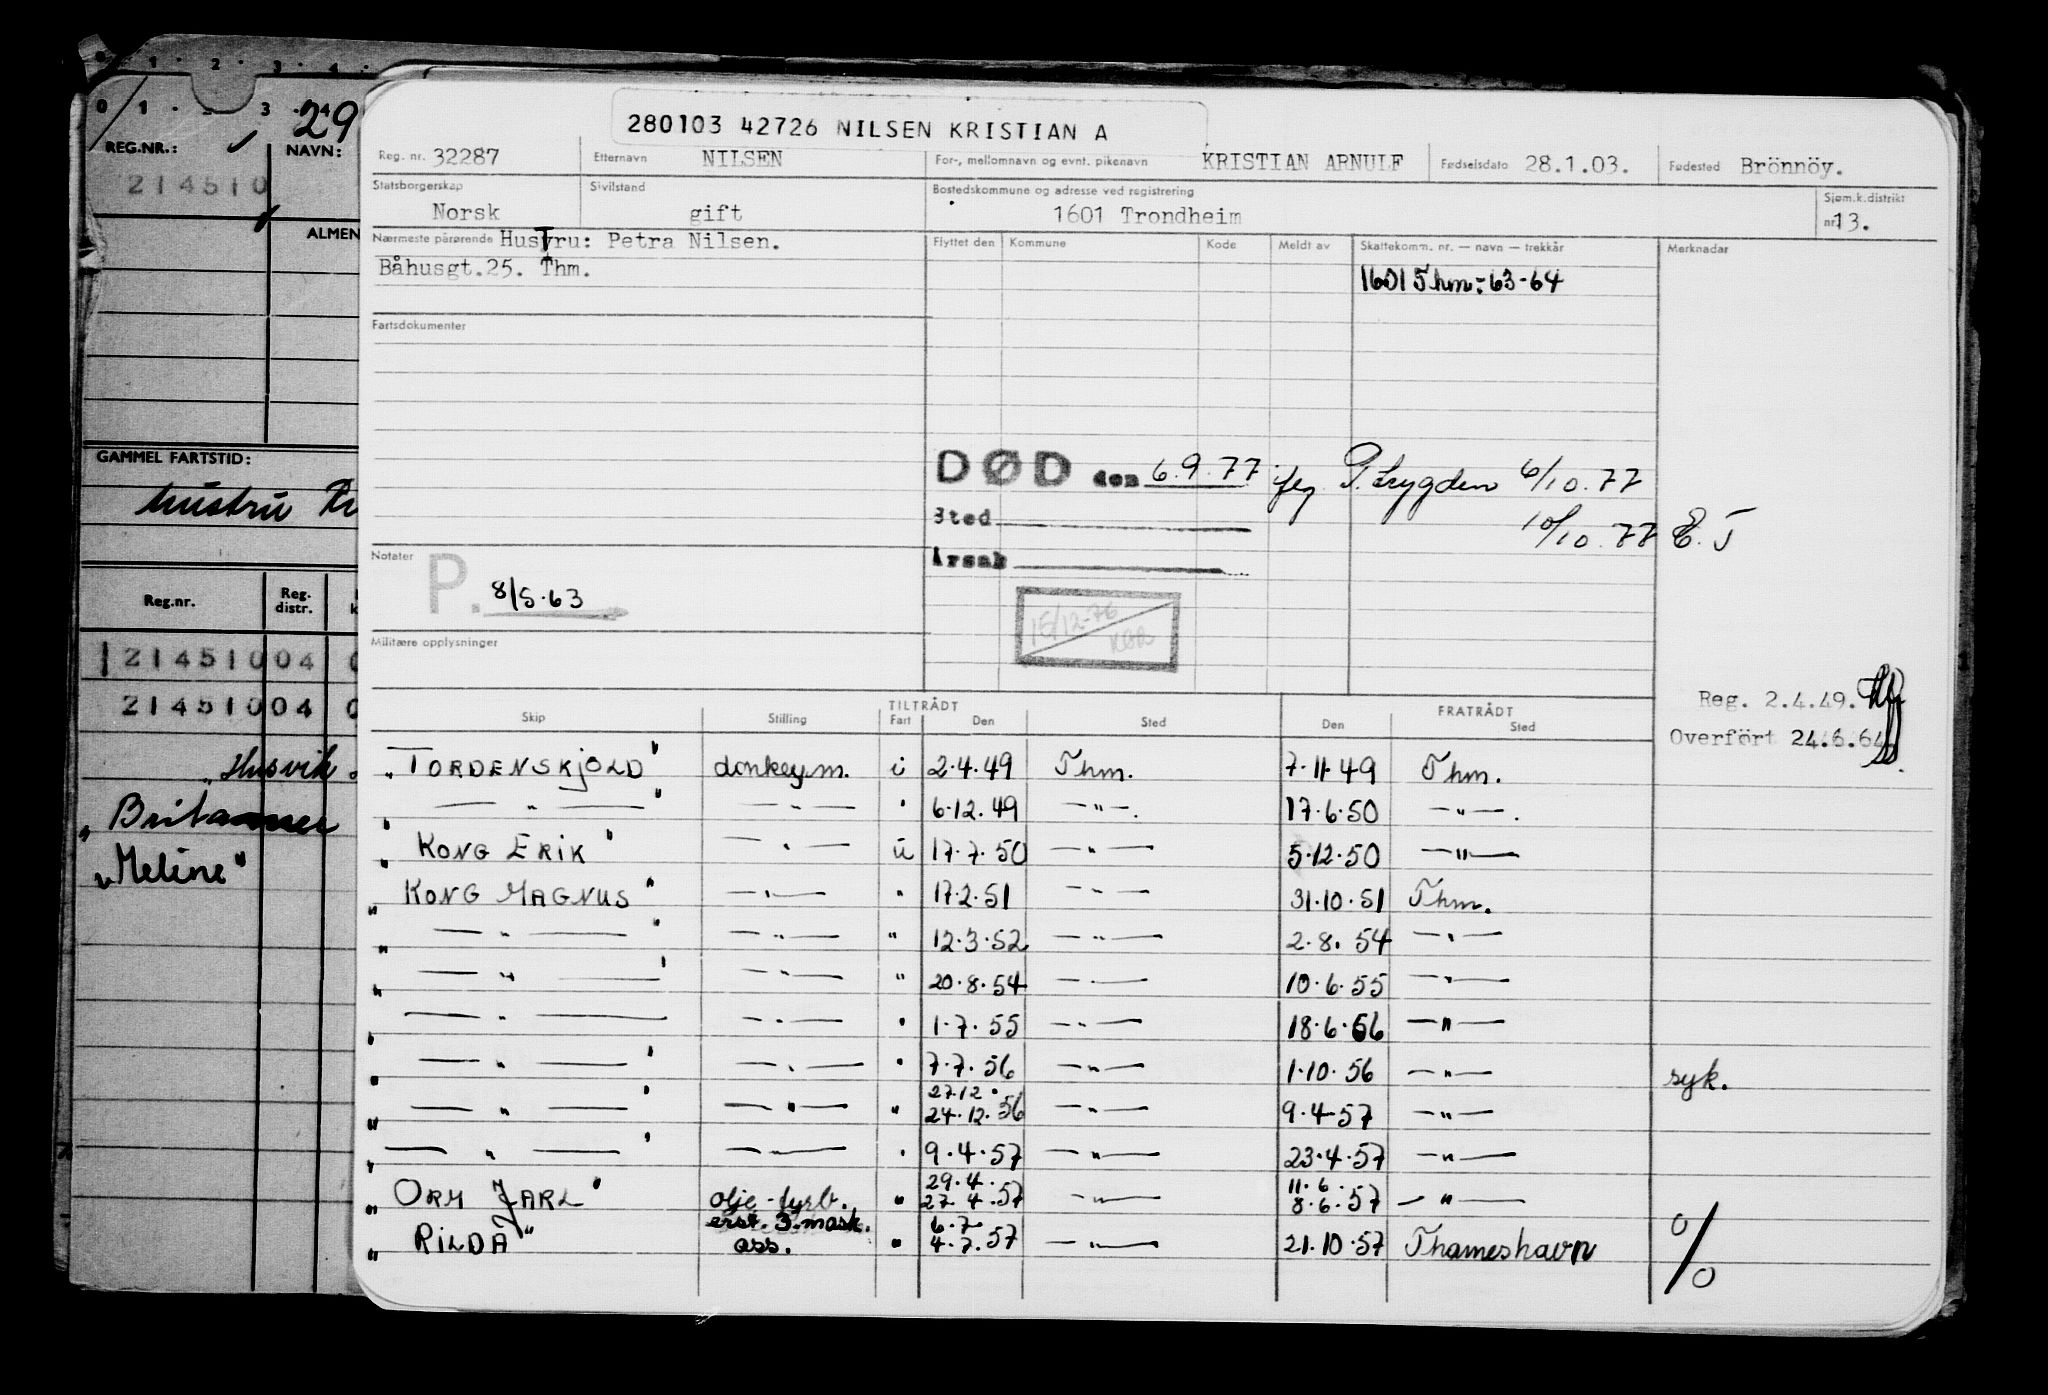 0 1 2 3 4
0 1 3 4
29
REG.NR.: NAVN:
214510
ALMEN
GAMMEL FARTSTID:
hustru
Reg.nr. Reg. distr.
21451004
21451004
"Husvik
"Britannea
"Meline"
280103 42726 NILSEN KRISTIAN A
Reg. nr. 32287 Etternavn NILSEN For-, mellomnavn og evnt. pikenavn KRISTIAN ARNULF Fødselsdato 28.1.03. Fødested Brönnöy.
Statsborgerskap Norsk Sivilstand gift Bostedskommune og adresse ved registrering 1601 Trondheim Sjøm.k.distrikt nr 13.
Nærmeste pårørende Hustru: Petra Nilsen. Flyttet den Kommune Kode Meldt av Skattekomm. nr. — navn — trekkår Merknader
Båhusgt.25. Thm. 1601 Thm: 63-64
Fartsdokumenter
DØD den 6.9.77 flg P.trygden 6/10.77
Sted 10/10.77 E.T
Årsak
Notater P. 8/5.63
15/12-76
Militære opplysninger
Reg. 2.4.49.
Overført 24.6.64
Skip Stilling TILTRÅDT Fart Den Sted FRATRÅDT Den Sted
"TORDENSKJOLD" donkeym. i 2.4.49 Thm. 7.11.49 Thm.
" — " — " — " — " 6.12.49 — " —. 17.6.50 — " —.
"KONG ERIK" — " — u 17.7.50 — " — 5.12.50 — " —
"KONG MAGNUS" — " — " 17.2.51 — " — 31.10.51 Thm.
" — " — " — " — " 12.3.52 — " — 2.8.54 — " —
" — " — " — " — " 20.8.54 — " — 10.6.55 — " —
" — " — — " — " 1.7.55 — " — 18.6.56 — " —
" — " — " — " — " 7.7.56 — " — 1.10.56 — " — syk.
27.12.
" — " — " — " — " 24.12.56 — " — 9.4.57 — " —
" — " — " — " — " 9.4.57 — " — 23.4.57 — " —
29.4. 11.6.
"ORM JARL" olje-fyrb. " 27.4.57 — " — 8.6.57 — " —
erst. 3.mask. 6.7
"RILDA" ass. " 4.7.57 — " — 21.10.57 Thameshavn
0/0